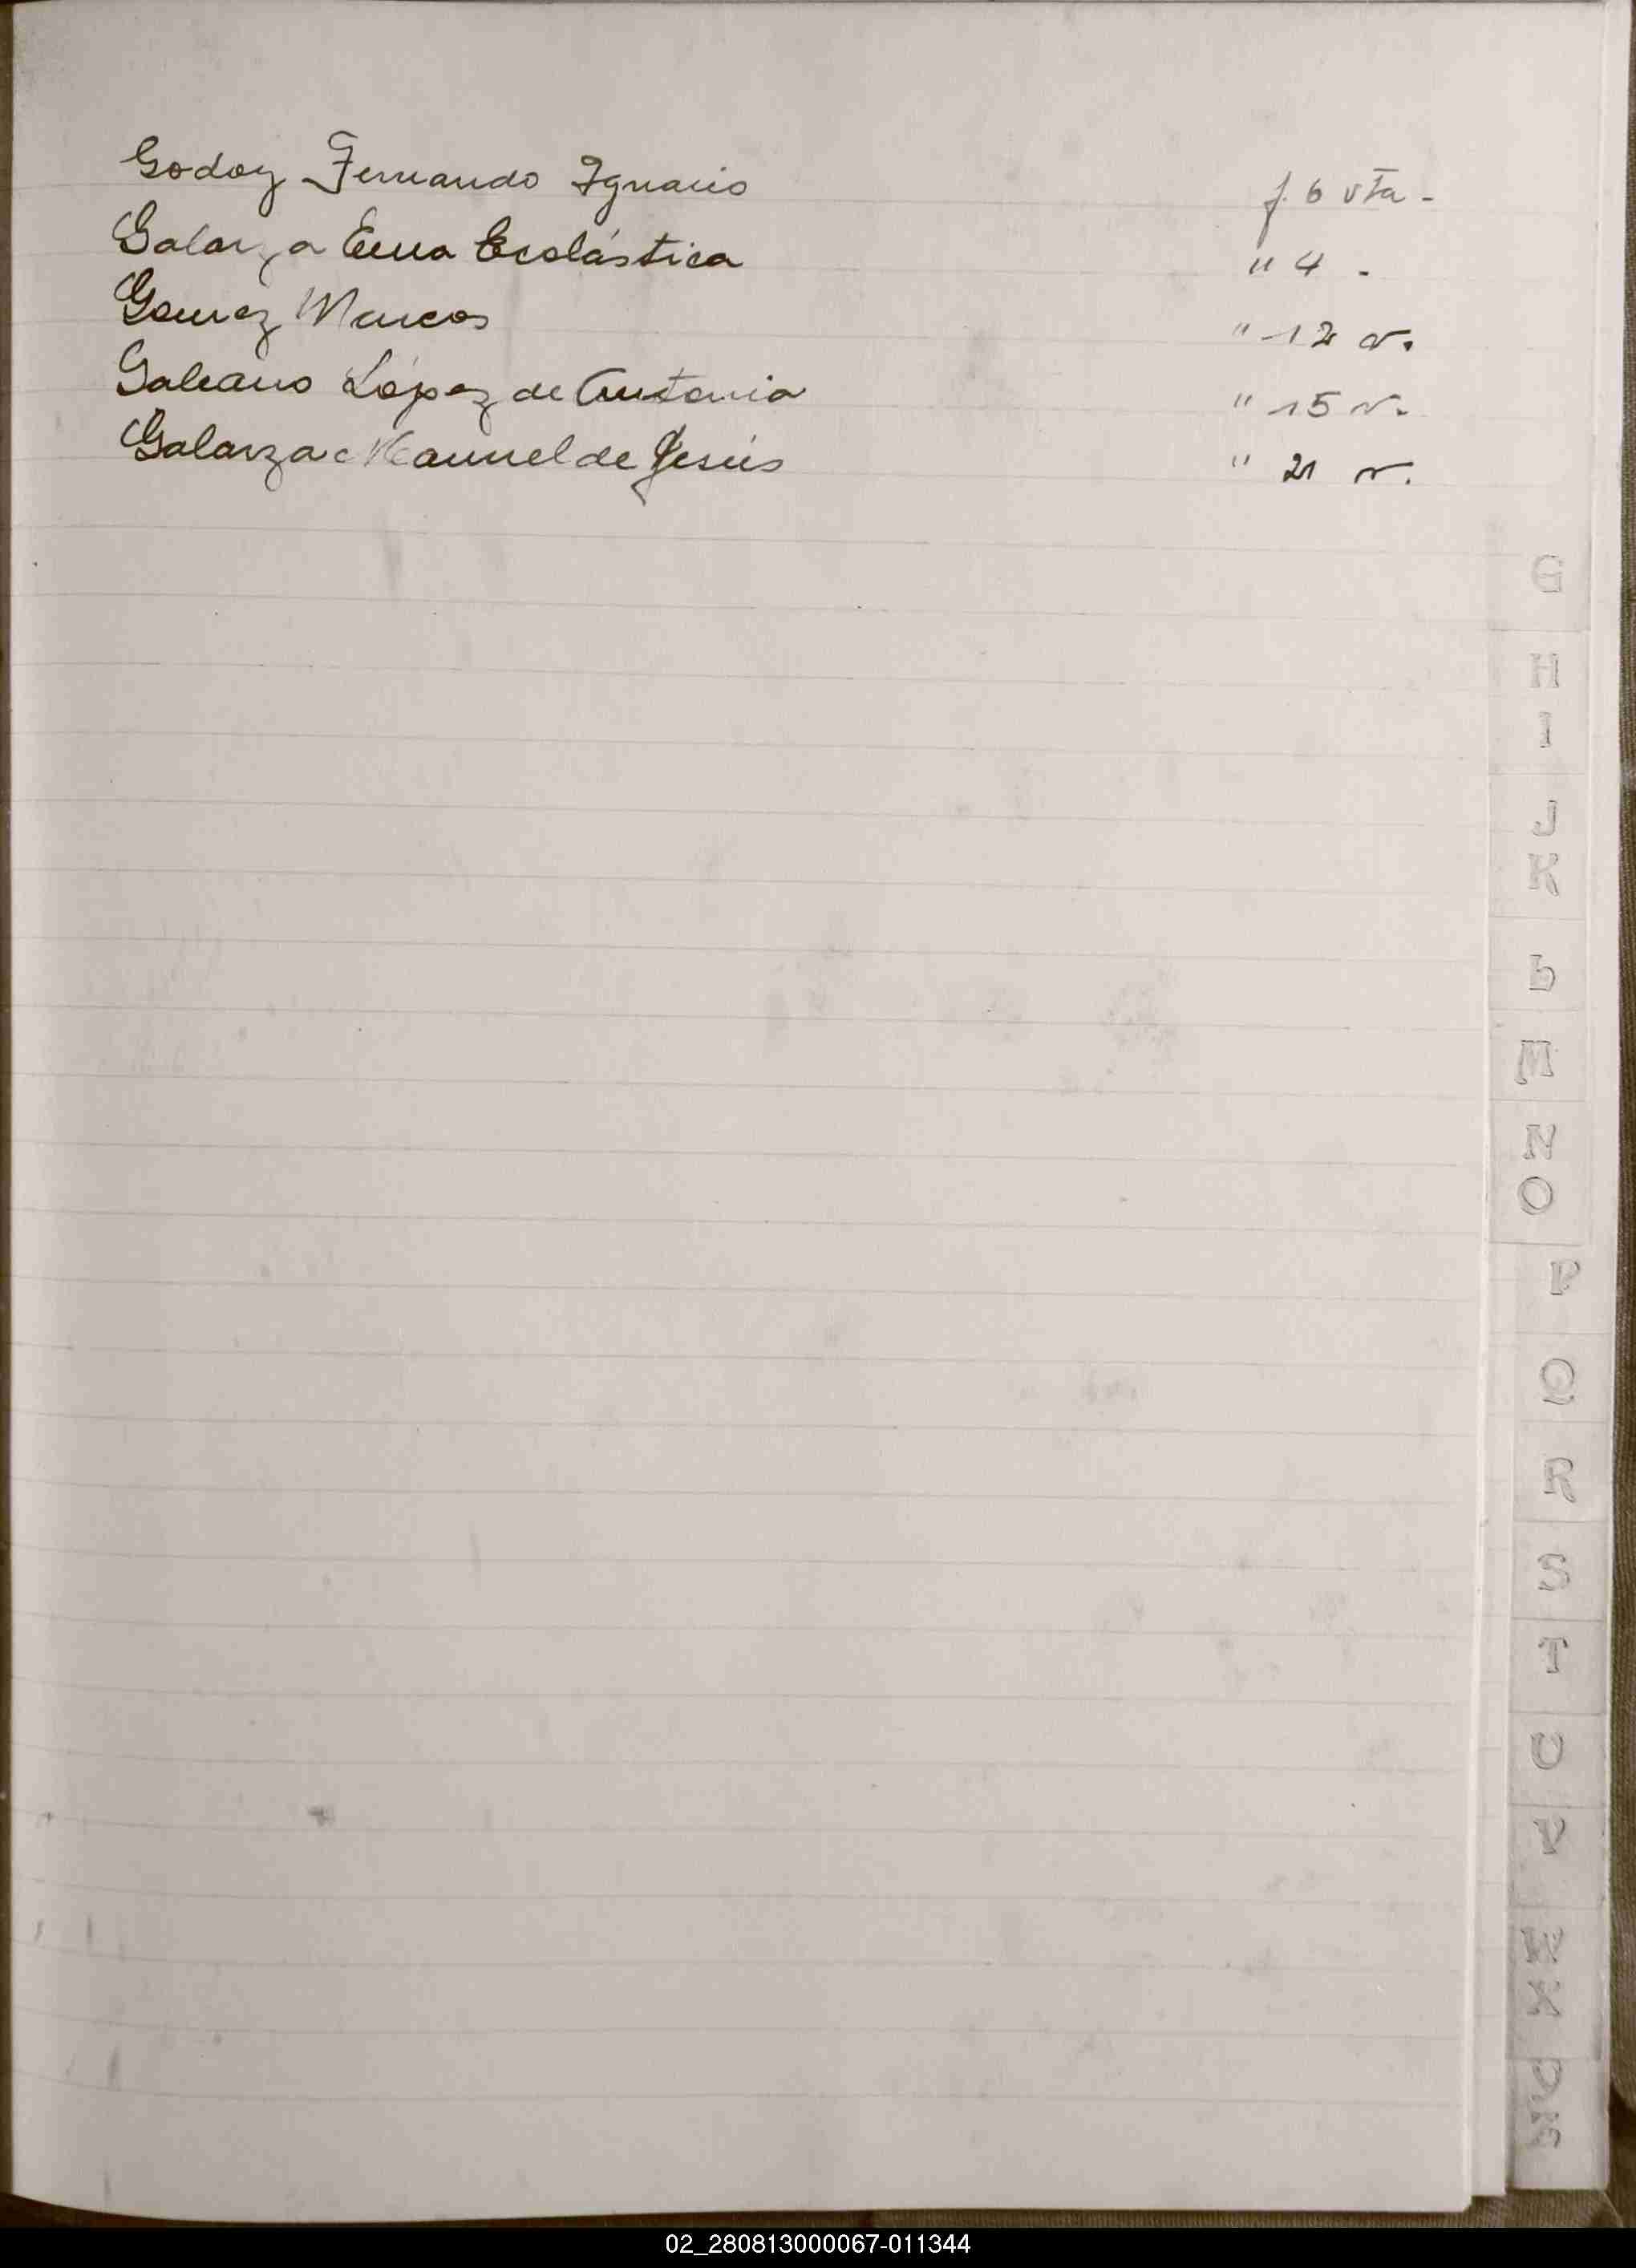 Godoy Fernando Ignacio f. 6 vta -
Galarza Ema Escolástica " 4 -
Gomez Marcos " 12 v.
Galeano López de Antonia " 15 v.
Galarza Manuel de Jesús " 21 v.
G
H
I
J
K
L
M
N
O
P
Q
R
S
T
U
V
X
02_280813000067-011344